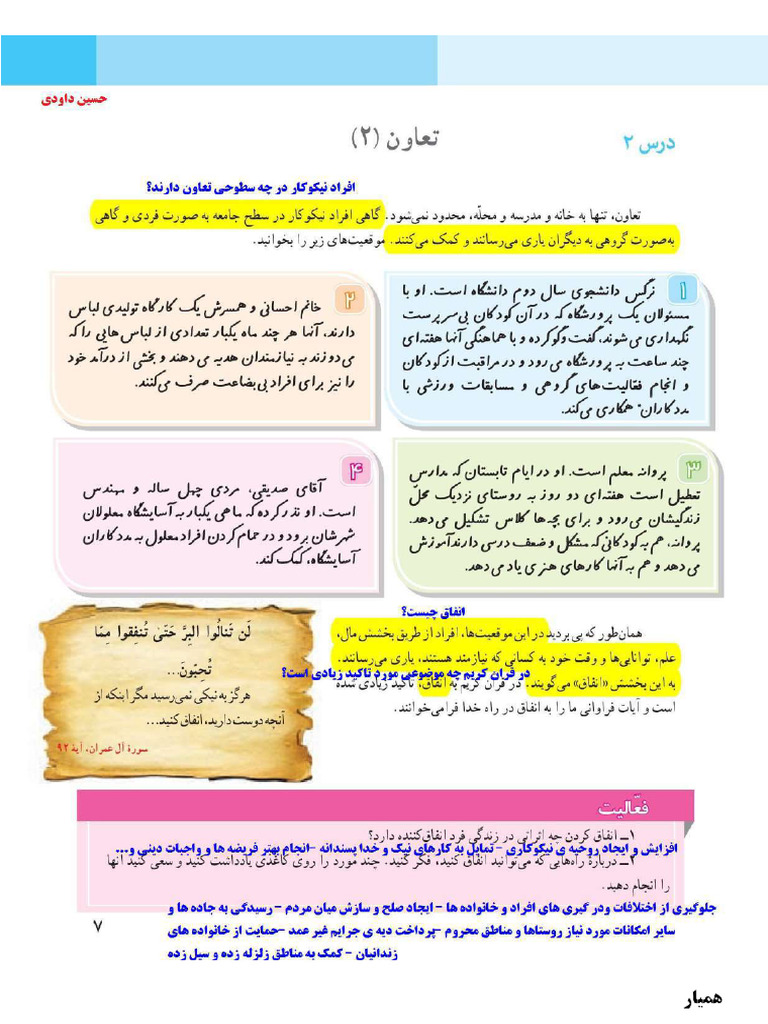 حسین داودی
درس ۲
تعاون (۲)
افراد نیکوکار در چه سطوحی تعاون دارند؟
تعاون، تنها به خانه و مدرسه و محلّه، محدود نمی‌شود. گاهی افراد نیکوکار در سطح جامعه به صورت فردی و گاهی
به‌صورت گروهی به دیگران یاری می‌رسانند و کمک می‌کنند. موقعیت‌های زیر را بخوانید.
۱
نرگس دانشجوی سال دوم دانشگاه است. او با
مسئولان یک پرورشگاه که در آن کودکان بی‌سرپرست
نگهداری می‌شوند، گفت‌وگو کرده و با هماهنگی آنها هفته‌ای
چند ساعت به پرورشگاه می‌رود و در مراقبت از کودکان
و انجام فعالیت‌های گروهی و مسابقات ورزشی با
مددکاران* همکاری می‌کند.
۲
خانم احسانی و همسرش یک کارگاه تولیدی لباس
دارند. آنها هر چند ماه یکبار تعدادی از لباس‌هایی را که
می‌دوزند به نیازمندان هدیه می‌دهند و بخشی از درآمد خود
را نیز برای افراد بی‌بضاعت صرف می‌کنند.
۳
پروانه معلم است. او در ایام تابستان که مدارس
تعطیل است هفته‌ای دو روز به روستای نزدیک محلّ
زندگیشان می‌رود و برای بچه‌ها کلاس تشکیل می‌دهد.
پروانه، هم به کودکانی که مشکل و ضعف درسی دارند آموزش
می‌دهد و هم به آنها کارهای هنری یاد می‌دهد.
۴
آقای صدیقی، مردی چهل ساله و مهندس
است. او نذر کرده که ماهی یکبار به آسایشگاه معلولان
شهرشان برود و در حمام کردن افراد معلول به مددکاران
آسایشگاه، کمک کند.
انفاق چیست؟
همان‌طور که پی بردید در این موقعیت‌ها، افراد از طریق بخشش مال،
علم، توانایی‌ها و وقت خود به کسانی که نیازمند هستند، یاری می‌رسانند.
در قران کریم چه موضوعی مورد تاکید زیادی است؟
به این بخشش «انفاق» می‌گویند. در قرآن کریم به انفاق، تأکید زیادی شده
است و آیات فراوانی ما را به انفاق در راه خدا فرا می‌خوانند.
لَن تَنالُوا البِرَّ حَتّیٰ تُنفِقوا مِمّا
تُحِبّونَ...
هرگز به نیکی نمی‌رسید مگر اینکه از
آنچه دوست دارید، انفاق کنید...
سورهٔ آل عمران، آیهٔ ۹۲
فعّالیت
۱ــ انفاق کردن چه اثراتی در زندگی فرد انفاق‌کننده دارد؟
افزایش و ایجاد روحیه ی نیکوکاری - تمایل به کارهای نیک و خدا پسندانه -انجام بهتر فریضه ها و واجبات دینی و...
۲ــ دربارهٔ راه‌هایی که می‌توانید انفاق کنید، فکر کنید. چند مورد را روی کاغذی یادداشت کنید و سعی کنید آنها
را انجام دهید.
جلوگیری از اختلافات ودر گیری های افراد و خانواده ها - ایجاد صلح و سازش میان مردم - رسیدگی به جاده ها و
سایر امکانات مورد نیاز روستاها و مناطق محروم -پرداخت دیه ی جرایم غیر عمد -حمایت از خانواده های
زندانیان - کمک به مناطق زلزله زده و سیل زده
۷
همیار